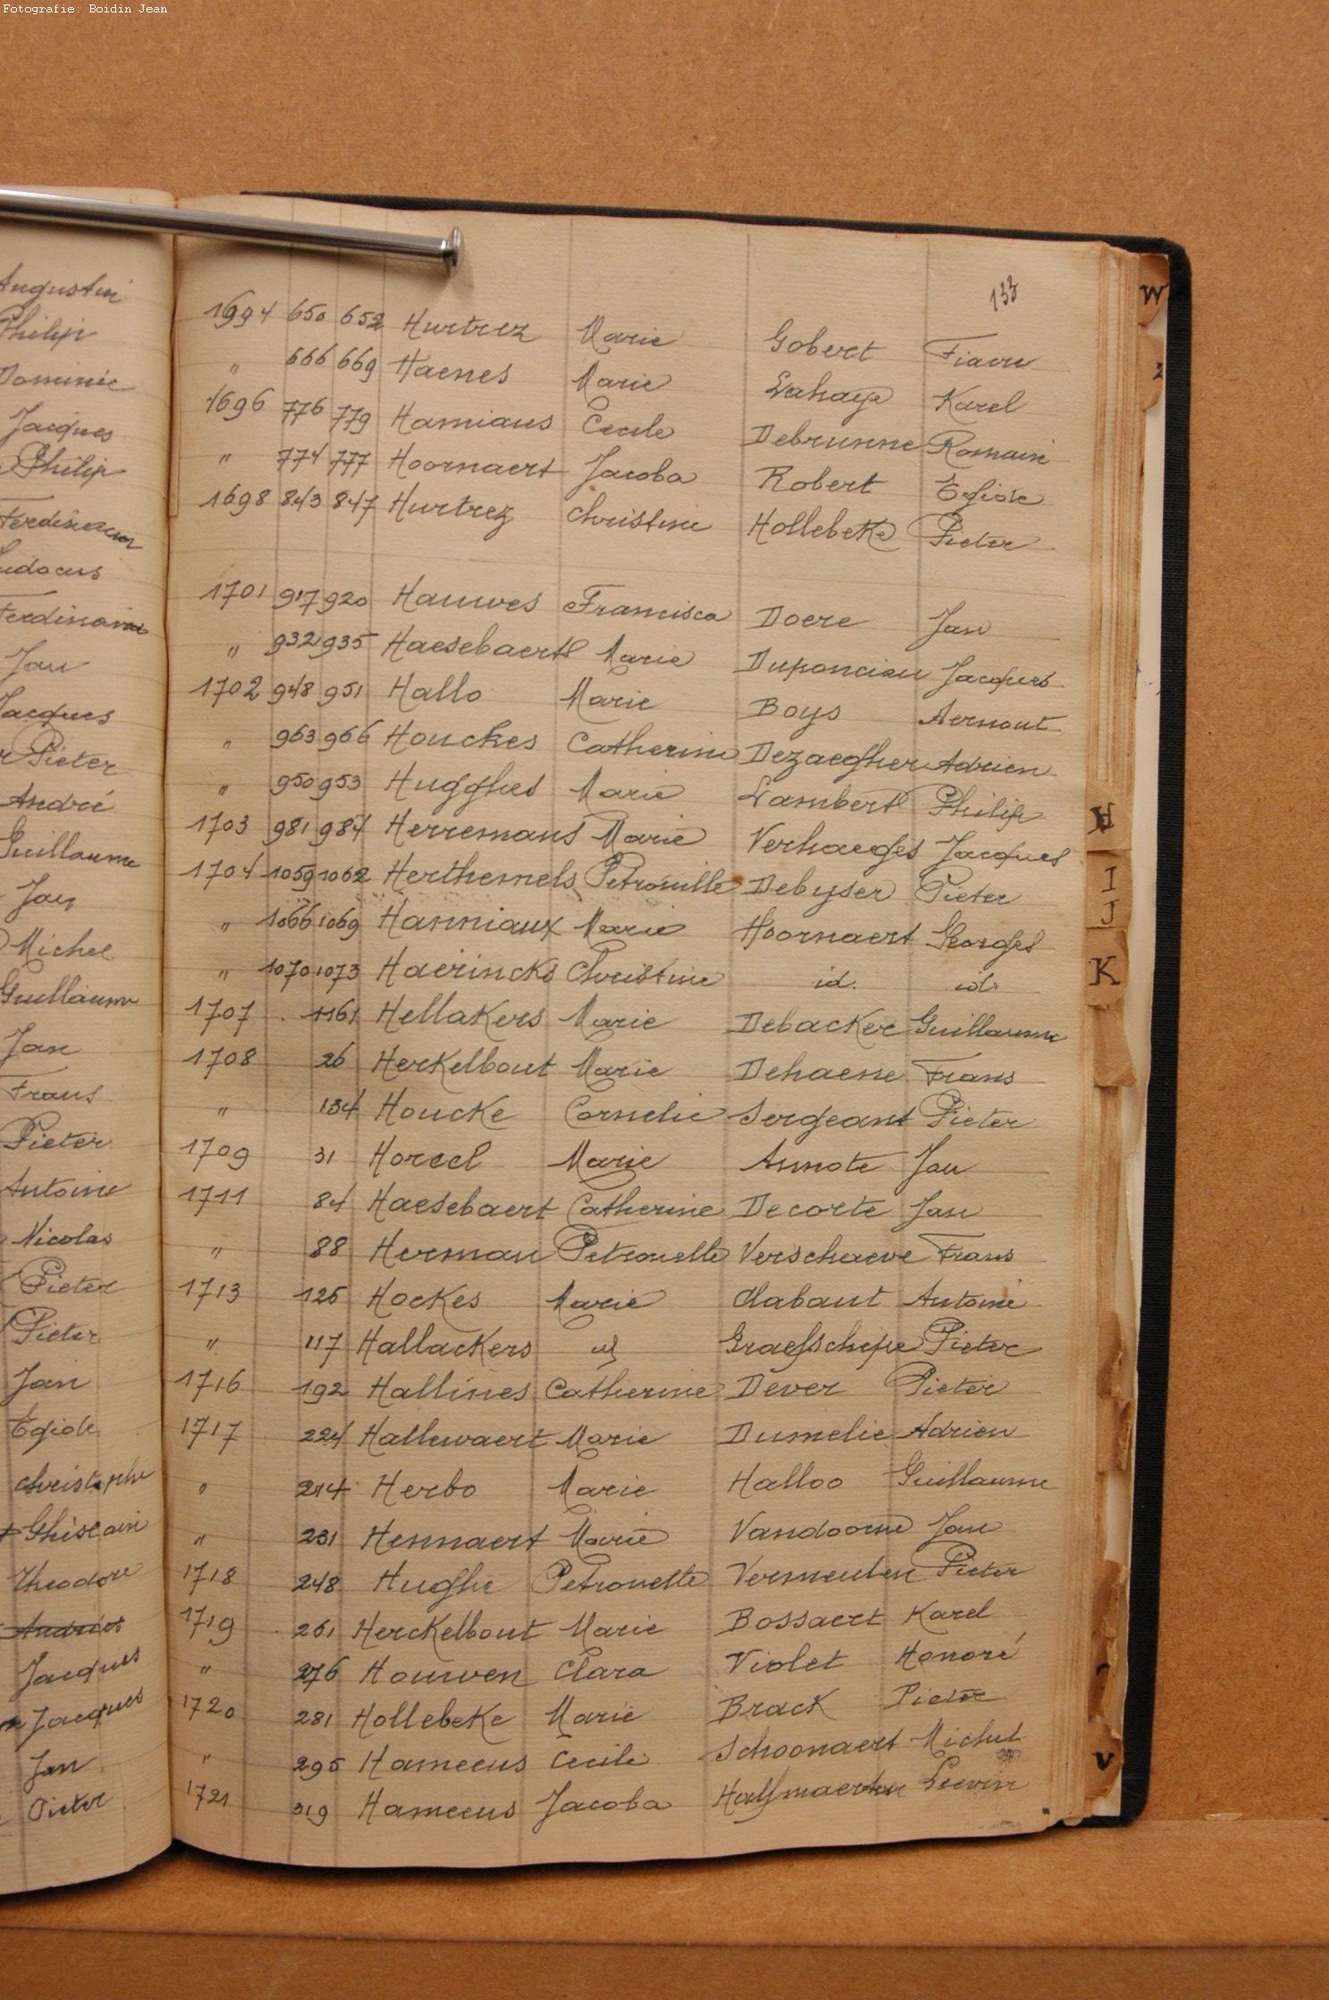 Fotografie: Boidin Jean
133
Augustin
Philip
Dominic
Jacques
Philip
Ferdinand
Judocus
Ferdinand
Jan
Jacques
Pieter
André
Guillaume
Jan
Michel
Guillaume
Jan
Frans
Pieter
Antoine
Nicolas
Pieter
Pieter
Jan
Egide
Christophe
Ghislain
Theodore
Jacques
Jacques
Jan
Pieter
1694 650 652 Hurtrez Marie Gobert
" 666 669 Haenes Marie Lahaye Karel
1696 776 779 Hamiaus Cecile Debrunne Romain
" 774 777 Hoornaert Jacoba Robert Egide
1698 843 847 Hurtrez Christine Hollebeke Pieter
1701 917 920 Hauwes Francisca Doere Jan
" 932 935 Haesebaert Marie Duponcieu Jacques
1702 948 951 Hallo Marie Boys Aernout
" 963 966 Houckes Catherine Dezaegher Adrien
" 950 953 Hugghes Marie Lambert Philip
1703 981 984 Herremans Marie Verhaeges Jacques
1704 1059 1062 Herthemels Petronille Debyser Pieter
" 1066 1069 Hanniaux Marie Hoornaert Georges
" 1070 1073 Haerincks Christine id. id.
1707 1161 Hellakers Marie Debacker Guillaume
1708 26 Herkelbout Marie Dehaene Frans
" 134 Houcke Cornelie Sergeant Pieter
1709 31 Horeel Marie Annote Jan
1711 84 Haesebaert Catherine Decorte Jan
" 88 Herman Petronelle Verschaeve Frans
1713 126 Hockes Marie Clabaut Antoine
" 117 Hallackers Graefschepe Pieter
1716 192 Hallines Catherine Dever Pieter
1717 224 Hallewaert Marie Dumelie Adrien
" 214 Herbo Marie Halloo Guillaume
" 231 Hennaert Marie Vandoorne Jan
1718 248 Hughe Petronelle Vermeulen Pieter
1719 261 Herckelbout Marie Bossaert Karel
" 276 Houwen Clara Violet Honoré
1720 281 Hollebeke Marie Brack Pieter
" 295 Hameeus Cecile Schoonaert Michel
1721 319 Hameeus Jacoba Lievin
W
Z
H
I
J
K
V